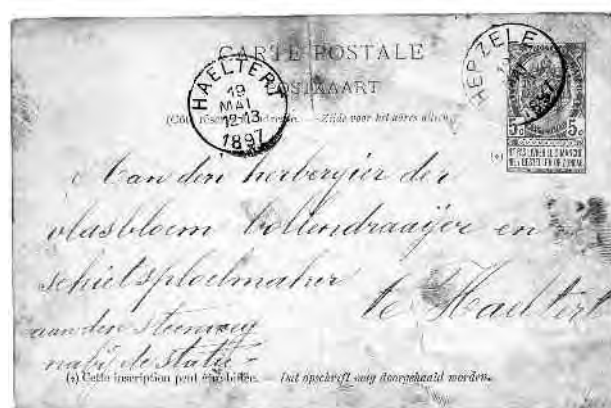 CARTE POSTALE
POSTKAART
(Côté réservé à l'adresse. — Zijde voor het adres alleen.)
HAELTERT
19
MAI
12-13
1897
HERZELE
1897
5c 5c
NE PAS LIVRER LE DIMANCHE
NIET BESTELLEN OP ZONDAG
(+)
Aan den herbergier der
vlasbloem bollendraaijer en
schietsploelmaker
te Haeltert
aan den steenweg
nabij de statie -
(+) Cette inscription peut être biffée. — Dit opschrift mag doorgehaald worden.